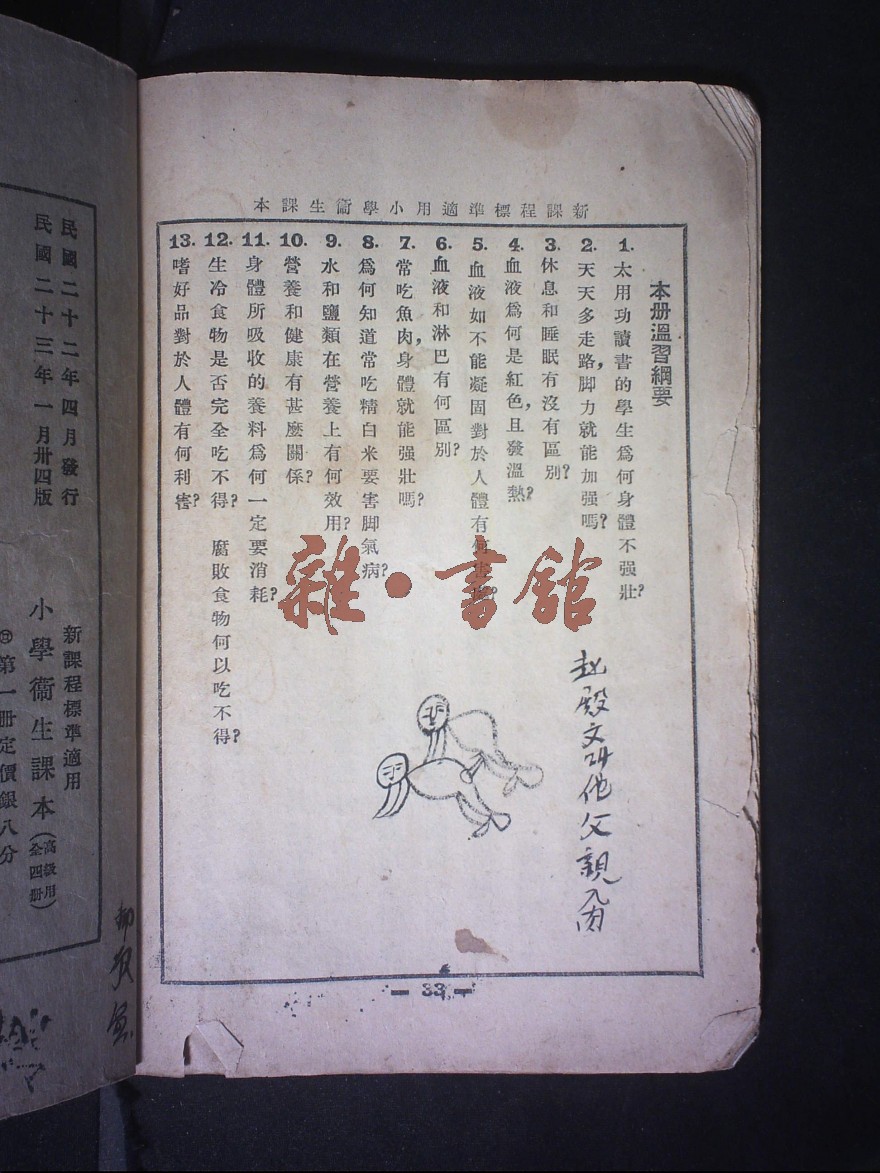 新課程標準適用小學衞生課本
本册溫習綱要
1. 太用功讀書的學生爲何身體不强壯?
2. 天天多走路，脚力就能加强嗎?
3. 休息和睡眠有沒有區別?
4. 血液爲何是紅色，且發溫熱?
5. 血液如不能凝固對於人體有何
6. 血液和淋巴有何區別?
7. 常吃魚肉，身體就能强壯嗎?
8. 爲何知道常吃精白米要害脚氣病?
9. 水和鹽類在營養上有何效用?
10. 營養和健康有甚麼關係?
11. 身體所吸收的養料爲何一定要消耗?
12. 生冷食物是否完全吃不得? 腐敗食物何以吃不得?
13. 嗜好品對於人體有何利害?
赵殿文叫他父親
雜·書館
— 33 —
民國二十二年四月發行
民國二十三年一月卅四版
新課程標準適用
小學衞生課本（高級用全四册）
第一册定價銀八分